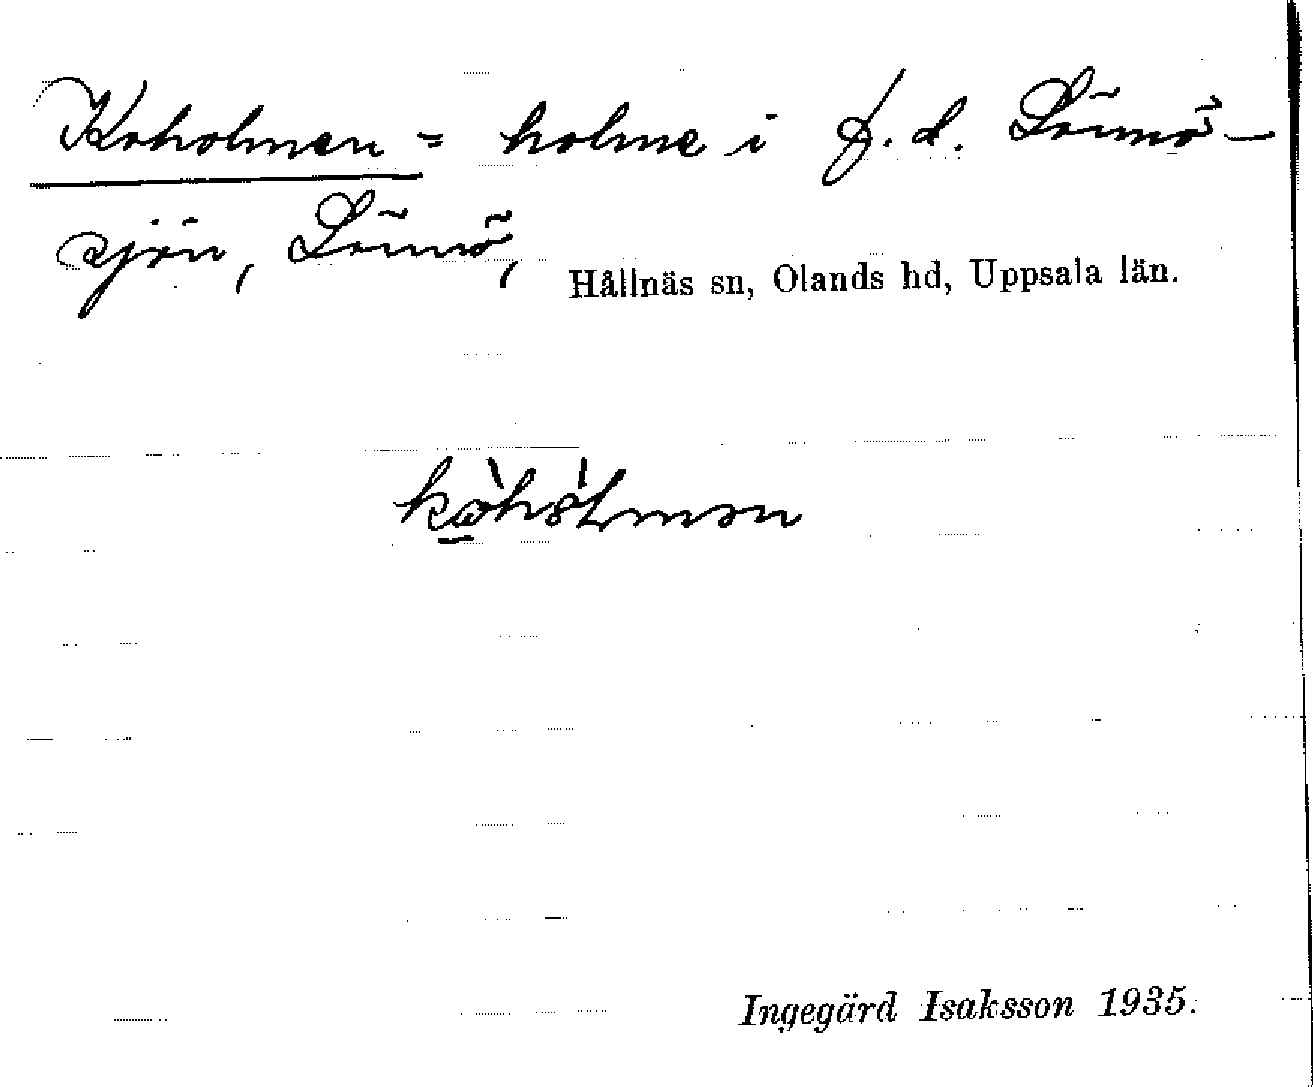 Koholmen = holme i f. d. Lönnö-
sjön, Lönnö,
Hållnäs sn, Olands hd, Uppsala län.
Ingegärd Isaksson 1935.